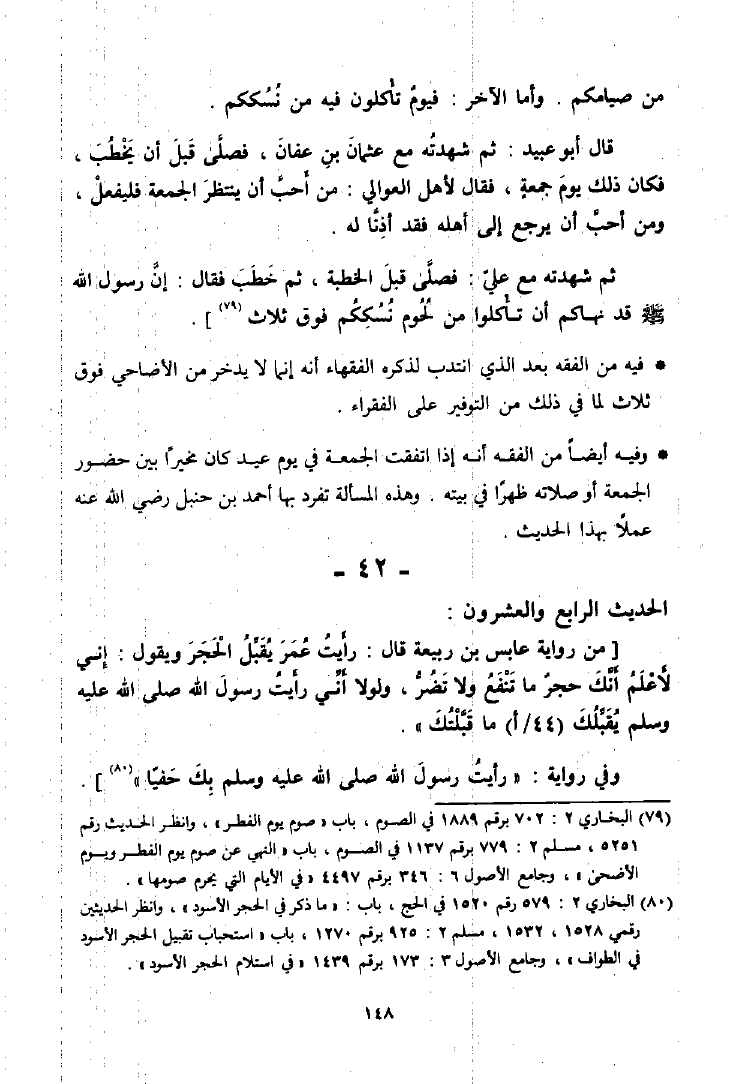 من صيامكم . وأما الآخر : فيومٌ تأكلون فيه من نُسُككم .
قال أبو عبيد : ثم شهدتُه مع عثمانَ بنِ عفانَ ، فصلَّى قَبلَ أن يَخْطُبَ ،
فكان ذلك يومَ جمعةٍ ، فقال لأهل العوالي : من أَحبَّ أن ينتظرَ الجمعة فليفعلْ ،
ومن أحبَّ أن يرجع إلى أهله فقد أذِنَّا له .
ثم شهدته مع عليّ : فصلَّى قبلَ الخطبة ، ثم خَطَبَ فقال : إنَّ رسول الله
ﷺ قد نهاكم أن تأكلوا من لُحُوم نُسُكِكُم فوق ثلاث (٧٩) ] .
* فيه من الفقه بعد الذي انتدب لذكره الفقهاء أنه إنما لا يدخر من الأضاحي فوق
ثلاث لما في ذلك من التوفير على الفقراء .
* وفيه أيضاً من الفقه أنه إذا اتفقت الجمعة في يوم عيد كان مخيرًا بين حضور
الجمعة أو صلاته ظهرًا في بيته . وهذه المسألة تفرد بها أحمد بن حنبل رضي الله عنه
عملًا بهذا الحديث .
- ٤٢ -
الحديث الرابع والعشرون :
[ من رواية عابس بن ربيعة قال : رأيتُ عُمَرَ يُقَبِّلُ الْحَجَرَ ويقول : إني
لَأعْلَمُ أَنَّكَ حجرٌ ما تَنْفَعُ ولا تَضُرُّ ، ولولا أنِّي رأيتُ رسولَ الله صلى الله عليه
وسلم يُقَبِّلُكَ (٤٤/أ) ما قَبَّلْتُكَ » .
وفي رواية : « رأيتُ رسولَ الله صلى الله عليه وسلم بِكَ حَفيًا » (٨٠) ] .
(٧٩) البخاري ٢ : ٧٠٢ برقم ١٨٨٩ في الصوم ، باب « صوم يوم الفطر » ، وانظر الحديث رقم
٥٢٥١ ، مسلم ٢ : ٧٧٩ برقم ١١٣٧ في الصوم ، باب « النهي عن صوم يوم الفطر ويوم
الأضحى » ، وجامع الأصول ٦ : ٣٤٦ برقم ٤٤٩٧ « في الأيام التي يحرم صومها » .
(٨٠) البخاري ٢ : ٥٧٩ رقم ١٥٢٠ في الحج ، باب : « ما ذكر في الحجر الأسود » ، وانظر الحديثين
رقمي ١٥٢٨ ، ١٥٣٢ ، مسلم ٢ : ٩٢٥ برقم ١٢٧٠ ، باب « استحباب تقبيل الحجر الأسود
في الطواف » ، وجامع الأصول ٣ : ١٧٣ برقم ١٤٣٩ « في استلام الحجر الأسود » .
١٤٨